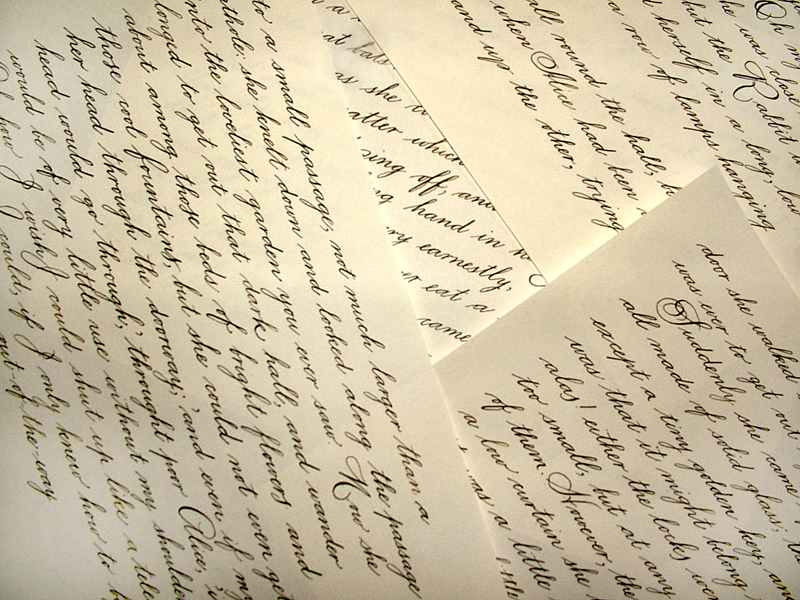 to a small passage, not much larger than a
thole: she knelt down and looked along the passage
into the loveliest garden you ever saw. How she
longed to get out that dark hall, and wander
about among those beds of bright flowers and
those cool fountains, but she could not even get
her head through the doorway; 'and even if my
head would go through,' thought poor Alice, i
would be of very little use without my shoulder
Oh how I wish I could shut up like a tele
I could, if I only knew how to b
out-of-the-way
at last
as she
after which
sing off, and
hand in
ry earnestly,
or eat a
came
Oh my
he was close
but the Rabbit
d herself in a long, low
a row of lamps hanging
all round the hall, b
when Alice had been
and up the ther, trying
door she walked
was ever to get out
Suddenly she came
all made of solid glass;
except a tiny golden key, and
was that it might belong
alas! either the locks wer
too small, but at any
of them. However, the
a low curtain she
was a little